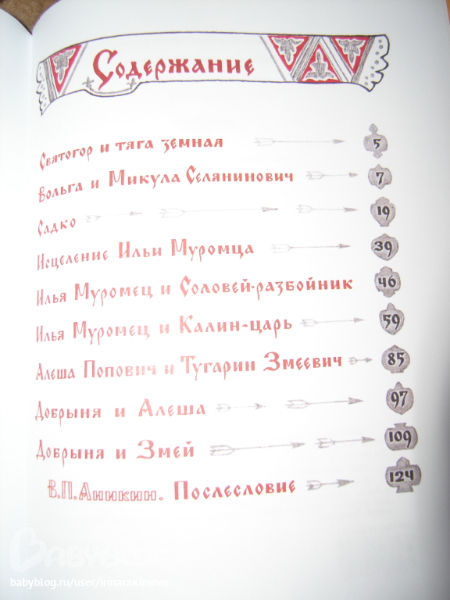 Содержание
Святогор и тяга земная 5
Вольга и Микула Селянинович 7
Садко 19
Исцеление Ильи Муромца 39
Илья Муромец и Соловей-разбойник 46
Илья Муромец и Калин-царь 59
Алеша Попович и Тугарин Змеевич 85
Добрыня и Алеша 97
Добрыня и Змей 109
В.П.Аникин. Послесловие 124